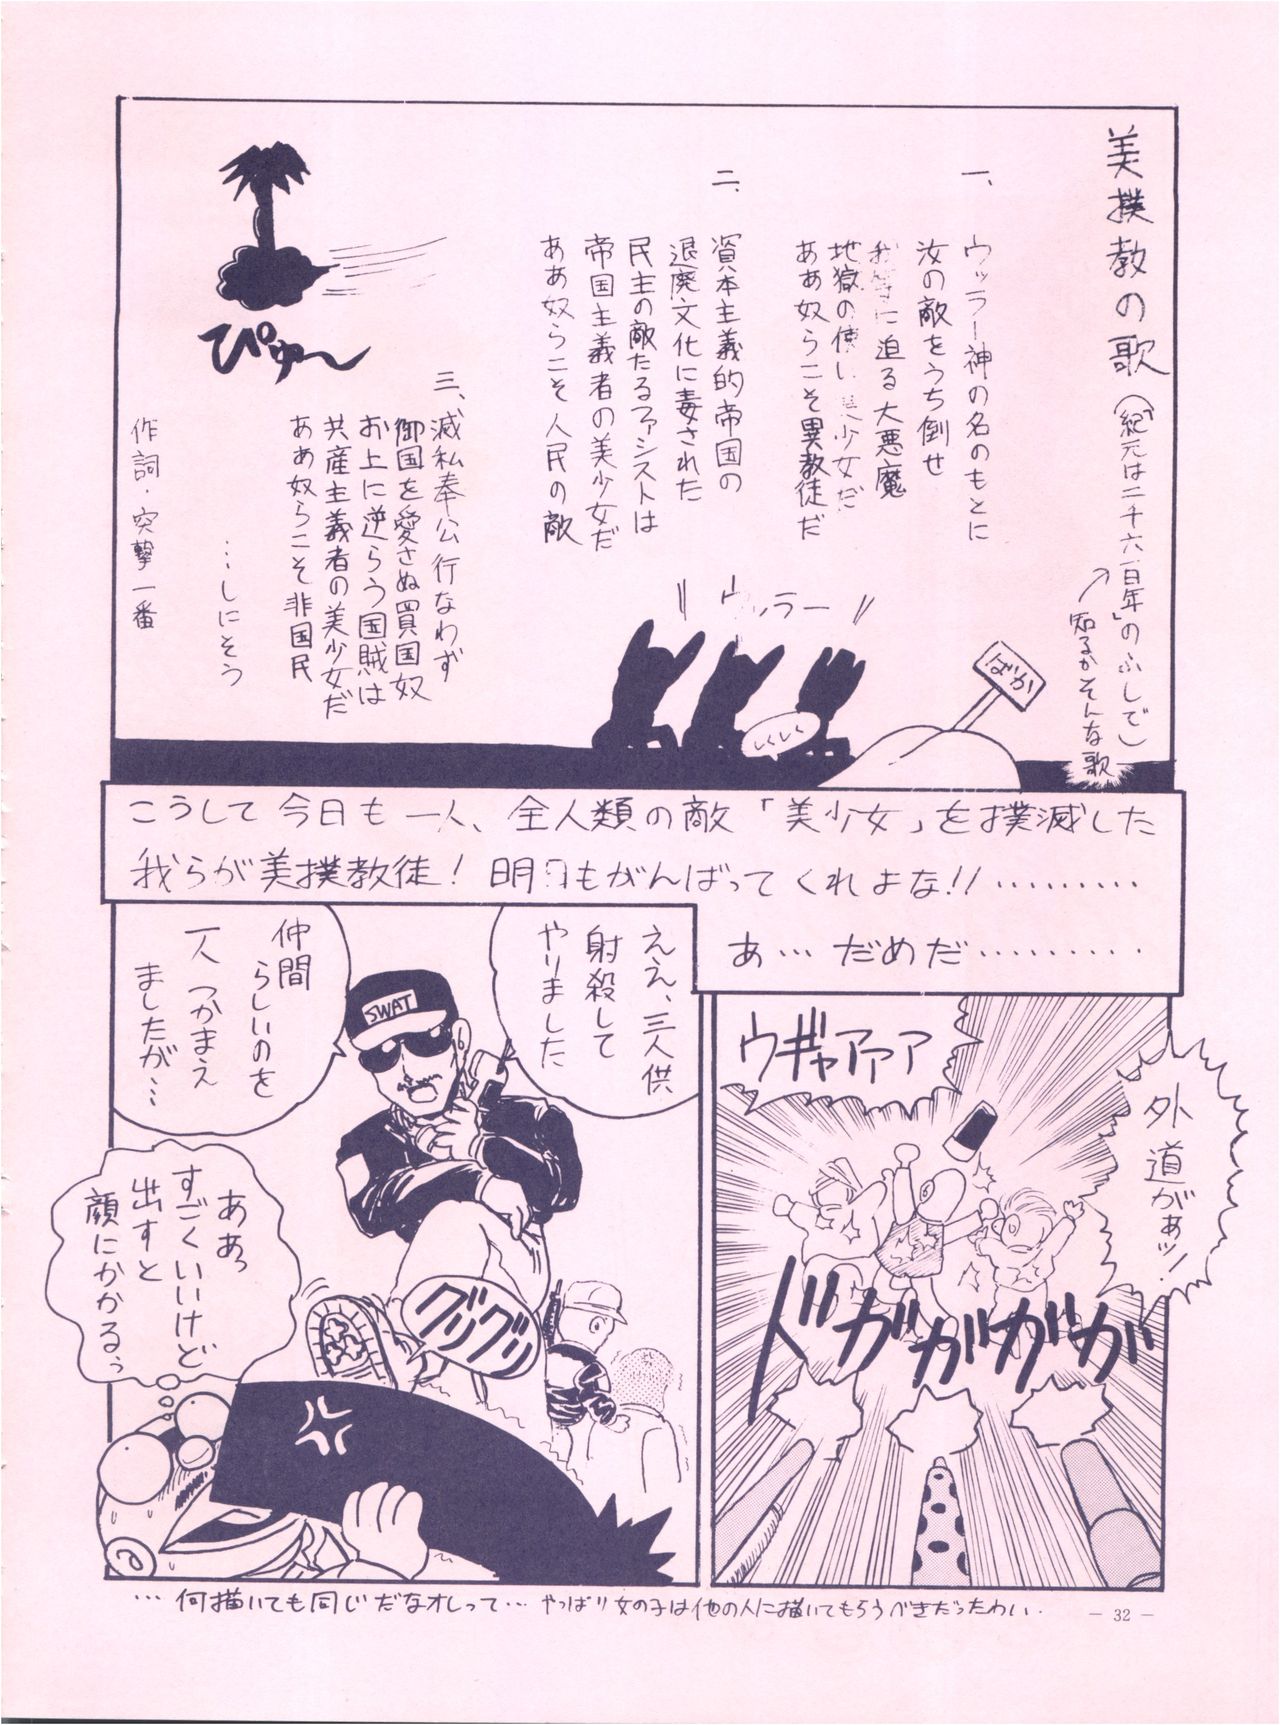 美撲教の歌(「紀元は二千六百年」のふしで)
知るかそんな歌
一、
ウッラー神の名のもとに
汝の敵をうち倒せ
我等に迫る大悪魔
地獄の使い美少女だ
ああ奴らこそ異教徒だ
二、
資本主義的帝国の
退廃文化に毒された
民主の敵たるファシストは
帝国主義者の美少女だ
ああ奴らこそ人民の敵
三、
滅私奉公行なわず
御国を愛さぬ買国奴
お上に逆らう国賊は
共産主義者の美少女だ
ああ奴らこそ非国民
…しにそう
作詞・突撃一番
ぴゅ〜
ウッラー
しくしく
ばか
こうして今日も一人、全人類の敵「美少女」を撲滅した
我らが美撲教徒! 明日もがんばってくれよな!!………
あ…だめだ………
外道がぁッ!
ウギャアァァ
ドガガガガ
ええ、三人供
射殺して
やりました
仲間
らしいのを
一人つかまえ
ましたが…
SWAT
グリグリ
ああっ
すごくいいけど
出すと
顔にかかるぅ
…何描いても同じだなオレって…やっぱり女の子は他の人に描いてもらうべきだったわい.
— 32 —